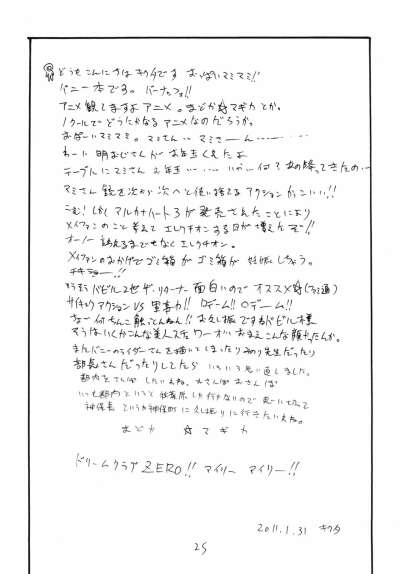 どうもこんにちは キクタです おっぱいマミマミ!!
バニー本です。バーナッフェ!!
アニメ観てますよ アニメ。まどか☆マギカ とか。
1クールでどうにかなるアニメなのだろうか。
おっぱいマミマミ。マミさん… マミさーん………
わーに 明おじさんが お年玉くれたよ
テーブルにマミさん 2年生… 降ってきたの…
マミさん 銃を次から次へと使い捨てる アクションがかっこいい!!
しばらく アルカナハート3が発売されたことにより
メイファンのこと考えて エレクチオンする日が増えたぞ!!
オーノー 訴えるまでもなくエレクチオン。
メイファンのおかげでゴミ箱が ゴミ箱が 妊娠しちゃう。
チキショー!!
そうそう バビル2世 ザ・リターナー 面白いので オススメ
サイキックアクション VS 軍事力!! Oゲーム!! Oゲーム!!
なー 何ちんこ触っとんねん!!
そうはいくかこんな美人ステ ワーオ!! おまえこんな顔だったんか。
またバニーのライダーさんを描いてしまったり みのり先生だったり
部長さんだったりしてたら いろいろ思い直しました。
都内をさんぽ したいよね。おさんぽ おさんぽ
いつも都内というと 秋葉原しか行かないので 思い切って
神保長 というか神保町に 久しぶりに行きたいよね。
まどか ☆ マギカ
ドリームクラブ ZERO!! マイリー マイリー!!
2011.1.31 キクタ
25